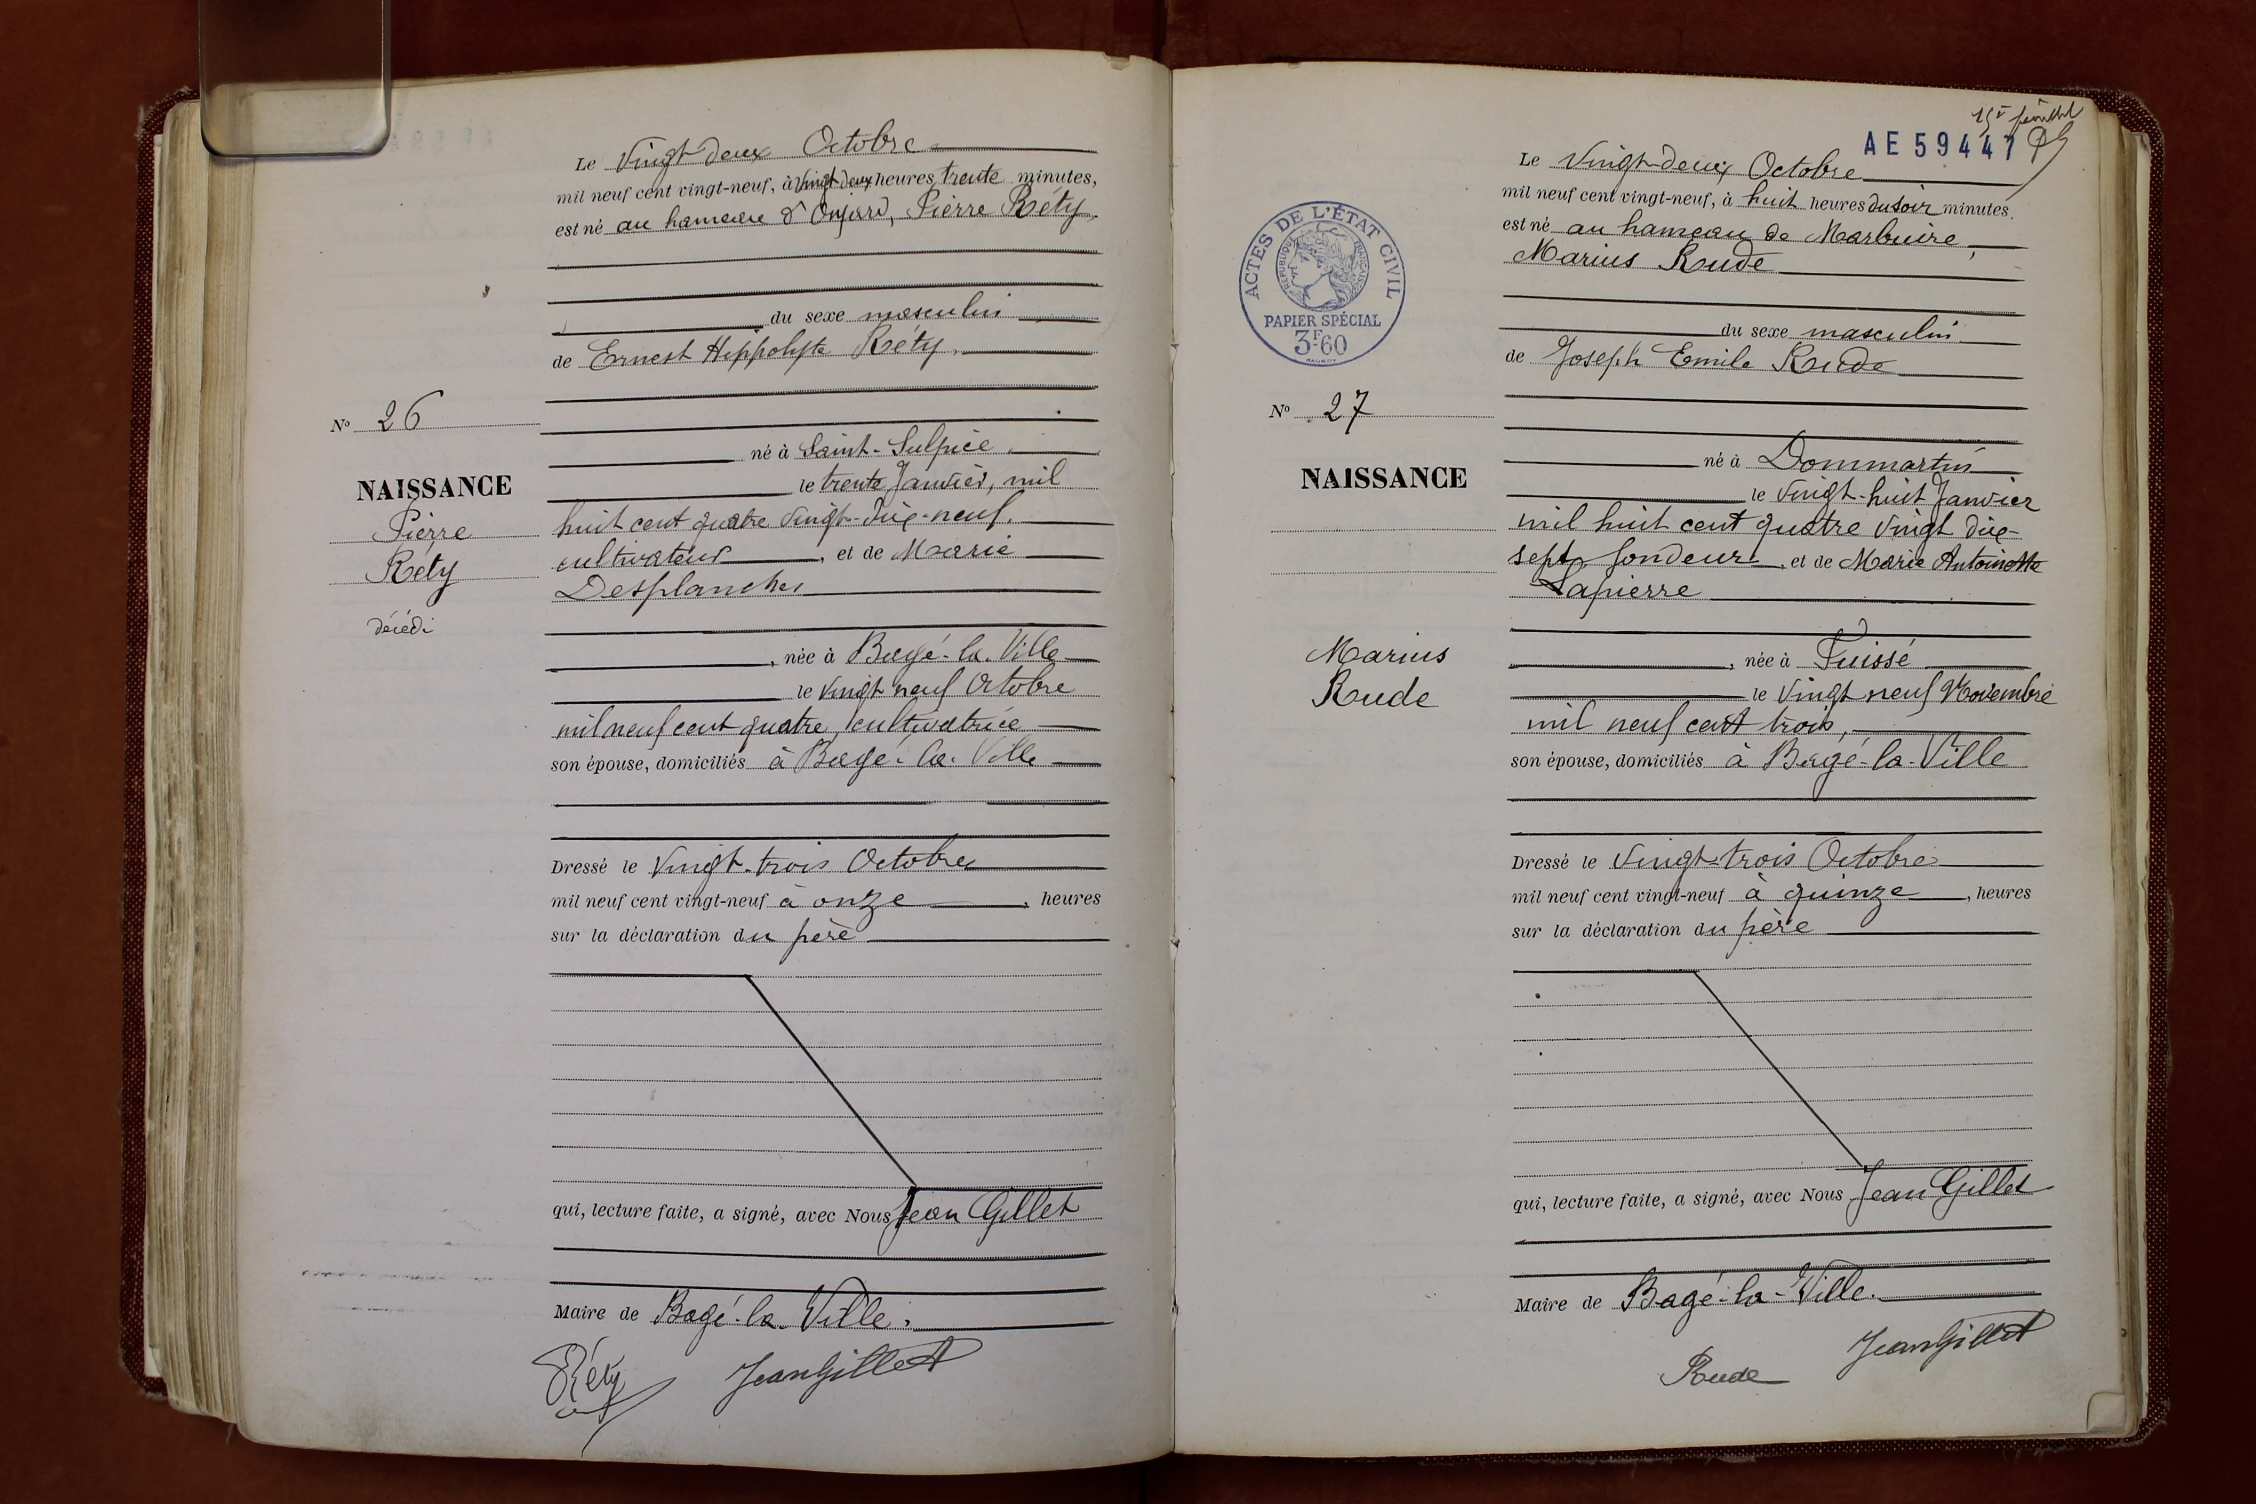 Le Vingt-deux Octobre
mil neuf cent vingt-neuf, à Vingt-deux heures trente minutes,
est né au hameau d'Onjard, Pierre Réty.
du sexe masculin
de Ernest Hippolyte Réty.
né à Saint-Sulpice.
le trente Janvier, mil
huit cent quatre vingt-dix-neuf.
cultivateur, et de Marie
Desplanches
, née à Bagé-la-Ville
le vingt neuf Octobre
mil neuf cent quatre, cultivatrice
son épouse, domiciliés à Bagé-la-Ville
Dressé le Vingt-trois Octobre
mil neuf cent vingt-neuf à onze, heures
sur la déclaration du père
qui, lecture faite, a signé, avec Nous Jean Gillet
Maire de Bagé-la-Ville.
Réty
Jean Gillet
No 26
NAISSANCE
Pierre
Réty
décédé
15e feuillet
AE 59447
Le Vingt-deux Octobre
mil neuf cent vingt-neuf, à huit heures du soir minutes,
est né au hameau de Marbuire,
Marius Rude
du sexe masculin
de Joseph Emile Rude
né à Dommartin
le vingt-huit Janvier
mil huit cent quatre vingt dix-
sept, fondeur, et de Marie Antoinette
Lapierre
, née à Fuissé
le vingt neuf Novembre
mil neuf cent trois,
son épouse, domiciliés à Bagé-la-Ville
Dressé le Vingt-trois Octobre
mil neuf cent vingt-neuf à quinze, heures
sur la déclaration du père
qui, lecture faite, a signé, avec Nous Jean Gillet
Maire de Bagé-la-Ville.
Rude
Jean Gillet
ACTES DE L'ÉTAT CIVIL
RÉPUBLIQUE FRANÇAISE
PAPIER SPÉCIAL
3F60
No 27
NAISSANCE
Marius
Rude